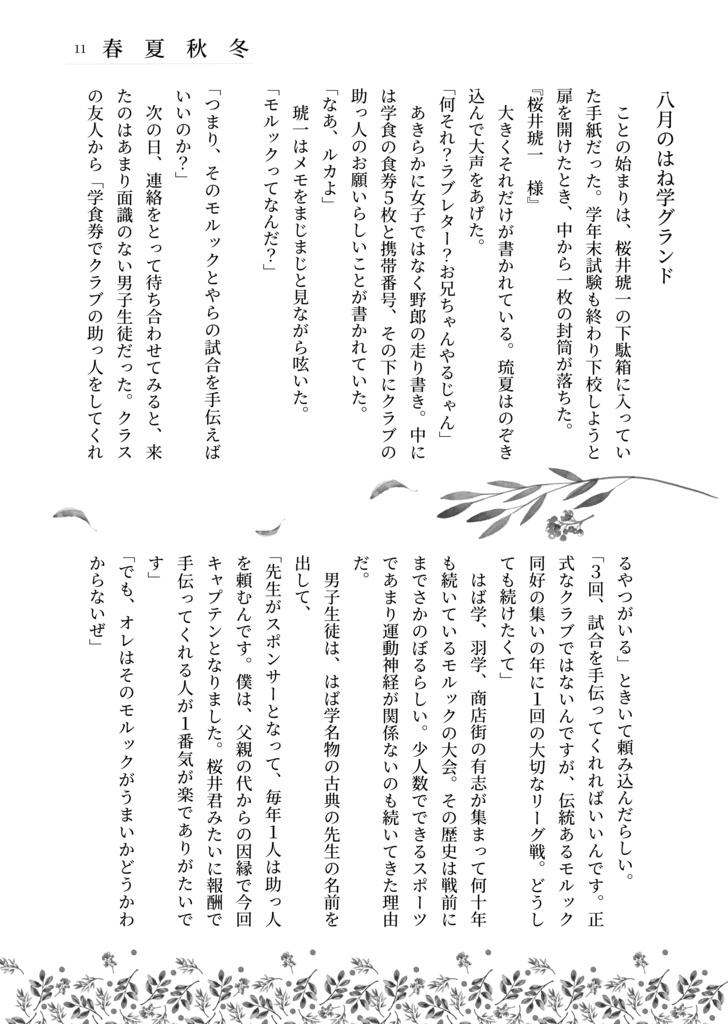 11 春夏秋冬
八月のはね学グランド
ことの始まりは、桜井琥一の下駄箱に入ってい
た手紙だった。学年末試験も終わり下校しようと
扉を開けたとき、中から一枚の封筒が落ちた。
『桜井琥一　様』
大きくそれだけが書かれている。琉夏はのぞき
込んで大声をあげた。
「何それ？ラブレター？お兄ちゃんやるじゃん」
あきらかに女子ではなく野郎の走り書き。中に
は学食の食券５枚と携帯番号、その下にクラブの
助っ人のお願いらしいことが書かれていた。
「なあ、ルカよ」
琥一はメモをまじまじと見ながら呟いた。
「モルックってなんだ？」
「つまり、そのモルックとやらの試合を手伝えば
いいのか？」
次の日、連絡をとって待ち合わせてみると、来
たのはあまり面識のない男子生徒だった。クラス
の友人から「学食券でクラブの助っ人をしてくれ
るやつがいる」ときいて頼み込んだらしい。
「３回、試合を手伝ってくれればいいんです。正
式なクラブではないんですが、伝統あるモルック
同好の集いの年に１回の大切なリーグ戦。どうし
ても続けたくて」
はば学、羽学、商店街の有志が集まって何十年
も続いているモルックの大会。その歴史は戦前に
までさかのぼるらしい。少人数でできるスポーツ
であまり運動神経が関係ないのも続いてきた理由
だ。
男子生徒は、はば学名物の古典の先生の名前を
出して、
「先生がスポンサーとなって、毎年１人は助っ人
を頼むんです。僕は、父親の代からの因縁で今回
キャプテンとなりました。桜井君みたいに報酬で
手伝ってくれる人が１番気が楽でありがたいで
す」
「でも、オレはそのモルックがうまいかどうかわ
からないぜ」